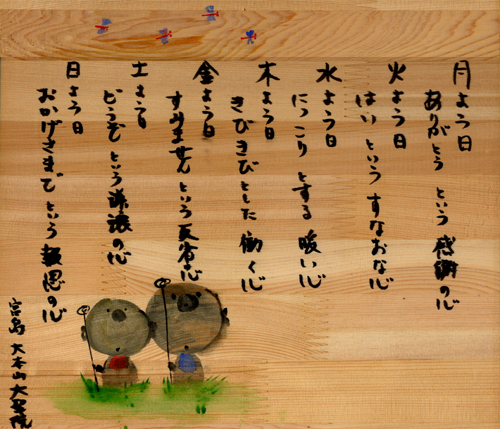 月よう日
ありがとう という 感謝の心
火よう日
はい という すなおな心
水よう日
にっこり とする 暖い心
木よう日
きびきび とした 働く心
金よう日
すみません という 反省の心
土よう日
どうぞ という 謙譲の心
日よう日
おかげさまで という 報恩の心
宮島 大本山大聖院